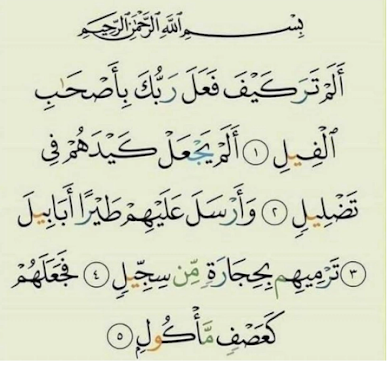 بِسْمِ اللَّهِ الرَّحْمَٰنِ الرَّحِيمِ
أَلَمْ تَرَ كَيْفَ فَعَلَ رَبُّكَ بِأَصْحَٰبِ
الْفِيلِ ١ أَلَمْ يَجْعَلْ كَيْدَهُمْ فِى
تَضْلِيلٍ ٢ وَأَرْسَلَ عَلَيْهِمْ طَيْرًا أَبَابِيلَ
٣ تَرْمِيهِم بِحِجَارَةٍ مِّن سِجِّيلٍ ٤ فَجَعَلَهُمْ
كَعَصْفٍ مَّأْكُولٍ ٥